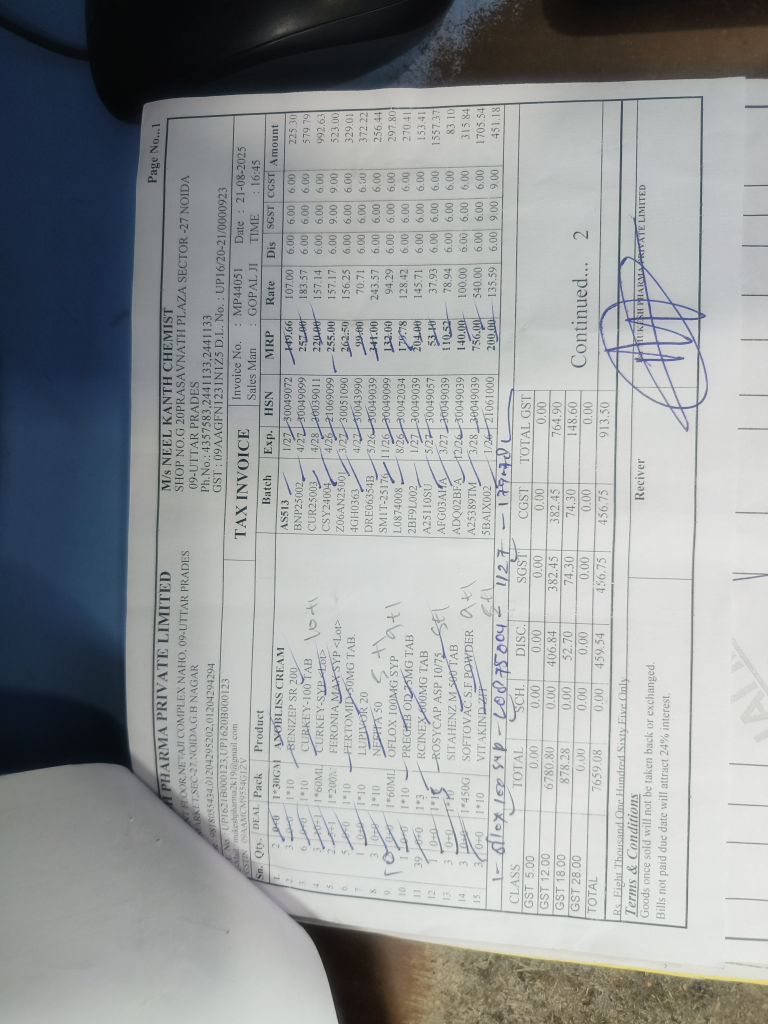 Page No...1
H PHARMA PRIVATE LIMITED
FLOOR,NETAJI COMPLEX NAHO, 09-UTTAR PRADES
MARKET,SEC-27,NOIDA,G.B NAGAR
9818055434,01204295202,01204294294
UP1621B000123,UP1620B000123
M/s NEEL KANTH CHEMIST
SHOP NO.G 20PRASAVNATH PLAZA SECTOR -27 NOIDA
09-UTTAR PRADES
Ph.No.: 4357583,2441133,2441133
GST : 09AAGFN1231N1Z5 D.L. No. : UP16/20-21/0000923
TAX INVOICE
Invoice No. : MP44051 Date : 21-08-2025
Sales Man : GOPAL JI TIME : 16:45
Sn. Qty. DEAL Pack Product Batch Exp. HSN MRP Rate Dis SGST CGST Amount
1. 2 0+0 1*30GM ANOBLISS CREAM AS513 1/27 30049072 149.66 107.00 6.00 6.00 6.00 225.30
2 3 1*10 BENIZEP SR 200 BNP25002 4/27 30049099 257.00 183.57 6.00 6.00 6.00 579.79
3 6 1*10 CURKEY-100 TAB CUR25003 4/28 30039011 220.00 157.14 6.00 6.00 6.00 992.63
4 3 1*60ML CURKEY-SYP <Lot> CSY24004 4/26 21069099 255.00 157.17 6.00 9.00 9.00 523.00
5 2 1*200M FERONIA MAX SYP <Lot> Z06AN25001 3/27 30051090 262.50 156.25 6.00 6.00 6.00 329.01
6 5 1*10 FERTOMID-50MG TAB. 4GH0363 4/27 30043990 99.00 70.71 6.00 6.00 6.00 372.22
7 1 0+0 1*10 LUPIVOR 20 DRE06354B 5/26 30049039 341.00 243.57 6.00 6.00 6.00 256.44
8 3 0+0 1*10 50 SM1T-25176 11/26 30049099 132.00 94.29 6.00 6.00 6.00 297.80
9 1*60ML OFLOX 100MG SYP L0874008 8/26 30042034 179.78 128.42 6.00 6.00 6.00 270.41
10 1 0+0 1*10 PREGEB OD 75MG TAB 2BF9L002 1/27 30049039 204.00 145.71 6.00 6.00 6.00 153.41
11 39 0+0 1*3 RCINEX 600MG TAB A25110SU 5/27 30049057 53.10 37.93 6.00 6.00 6.00 1557.37
12 1 0+0 ROSYCAP ASP 10/75 AFG03AHA 3/27 30049039 110.52 78.94 6.00 6.00 6.00 83.10
13 3 0+0 1*10 SITAHENZ M 500 TAB ADQ02BFA 12/26 30049039 140.00 100.00 6.00 6.00 6.00 315.84
14 3 1*450G SOFTOVAC S.F POWDER A25389TM 3/28 30049039 756.00 540.00 6.00 6.00 6.00 1705.54
15 3 0+0 1*10 VITAKIND 5BAIX002 1/26 21061000 200.00 135.59 6.00 9.00 9.00 451.18
1- oflox 100 syp - L0875004 1/27 - 179.78
CLASS TOTAL SCH. DISC. SGST CGST TOTAL GST
GST 5.00 0.00 0.00 0.00 0.00 0.00 0.00
GST 12.00 6780.80 0.00 406.84 382.45 382.45 764.90
GST 18.00 878.28 0.00 52.70 74.30 74.30 148.60
GST 28.00 0.00 0.00 0.00 0.00 0.00 0.00
TOTAL 7659.08 0.00 459.54 456.75 456.75 913.50
Continued.... 2
Rs. Eight Thousand One Hundred Sixty Five Only
Terms & Conditions
Goods once sold will not be taken back or exchanged.
Bills not paid due date will attract 24% interest.
Reciver
MUKESH PHARMA PRIVATE LIMITED